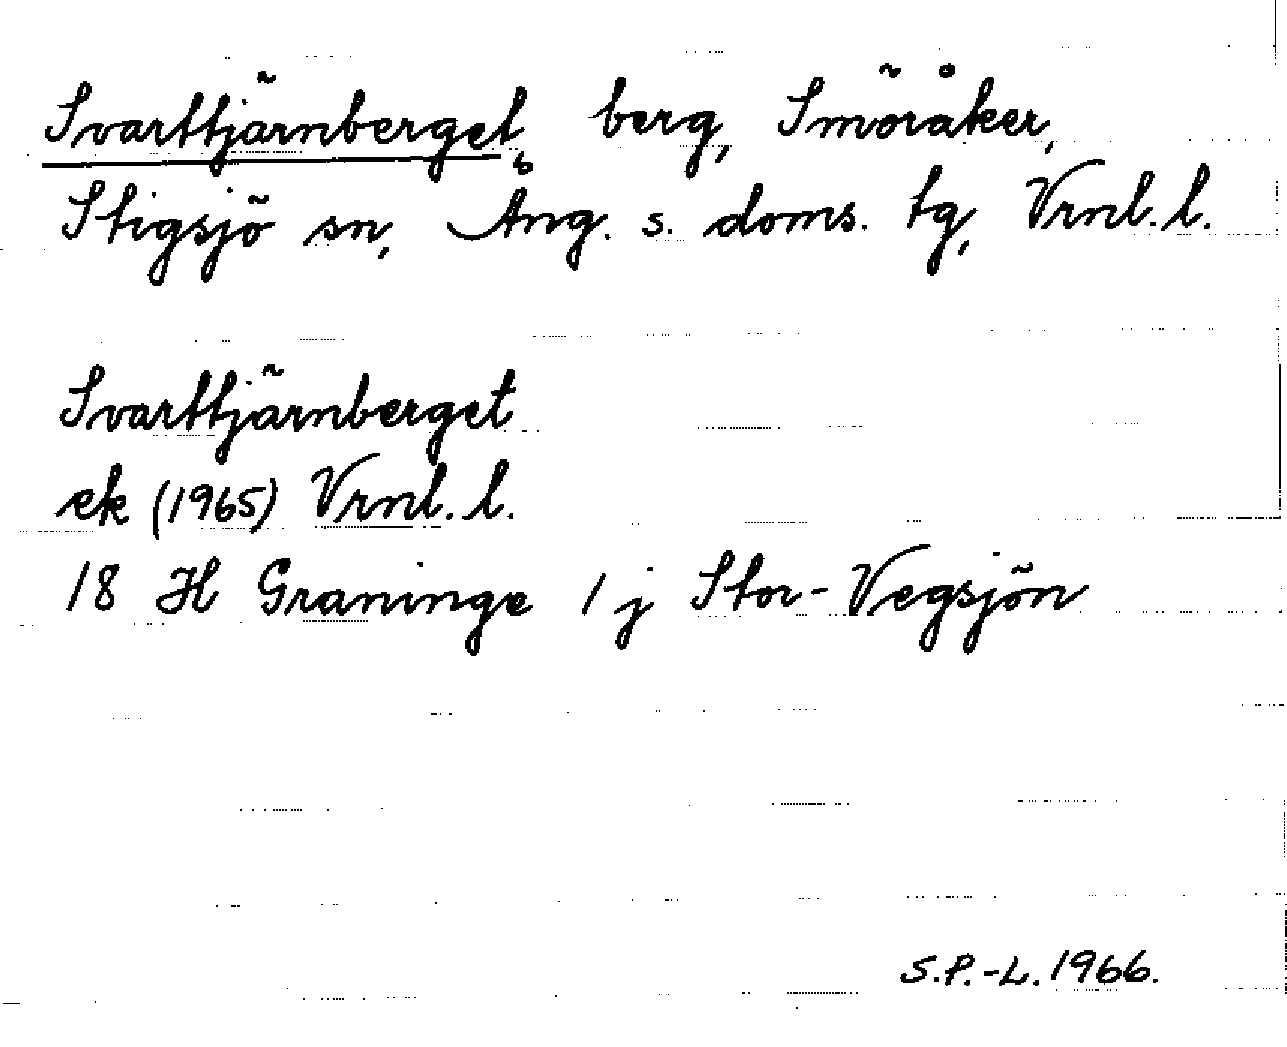 Svarttjärnberget, berg, Smöråker,
Stigsjö sn, Ång. s. doms. tg, Vrnl. l.
Svarttjärnberget
ek (1965) Vrnl. l.
18 H Graninge 1 j Stor-Vegsjön
S.P.-L. 1966.